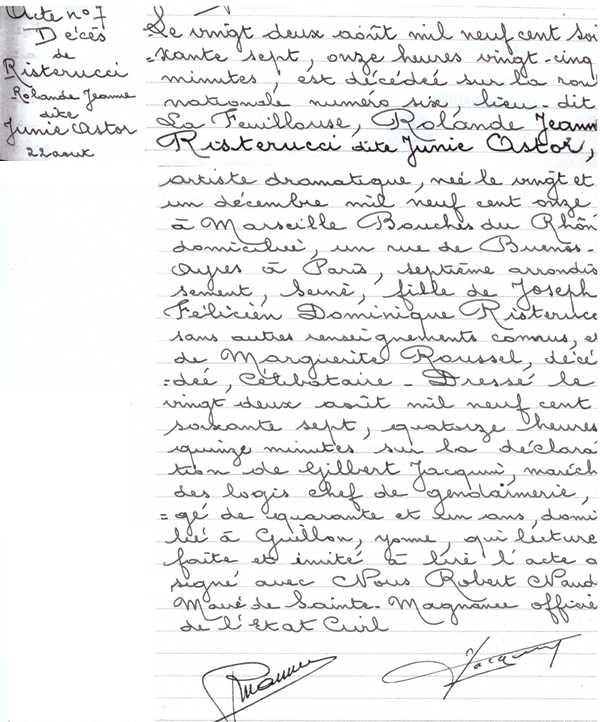 Acte nº 7
Décès
de
Risterucci
Rolande Jeanne
dite
Junie Astor
22 aout
Le vingt deux août mil neuf cent soi
=xante sept, onze heures vingt-cinq
minutes, est décédée sur la rou
nationale numéro six, lieu-dit
La Feuillouse, Rolande Jeann
Risterucci dite Junie Astor,
artiste dramatique, née le vingt et
un décembre mil neuf cent onze
à Marseille Bouches du Rhôn
domiciliée, un rue de Buenos-
Ayres à Paris, septième arrondis
sement, Seine, fille de Joseph
Félicien Dominique Risterucc
sans autres renseignements connus, et
de Marguerite Roussel, décé
=dée, Célibataire - Dressé le
vingt deux août mil neuf cent
soixante sept, quatorze heures
quinze minutes sur la déclara
tion de Gilbert Jacquin, maréch
des logis chef de gendarmerie,
=gé de quarante et un ans, domi
lié à Guillon, yonne, qui lecture
faite et invité à lire l'acte a
signé avec Nous Robert Naud
Maire de Sainte-Magnance officie
de l'Etat Civil
Jacquin